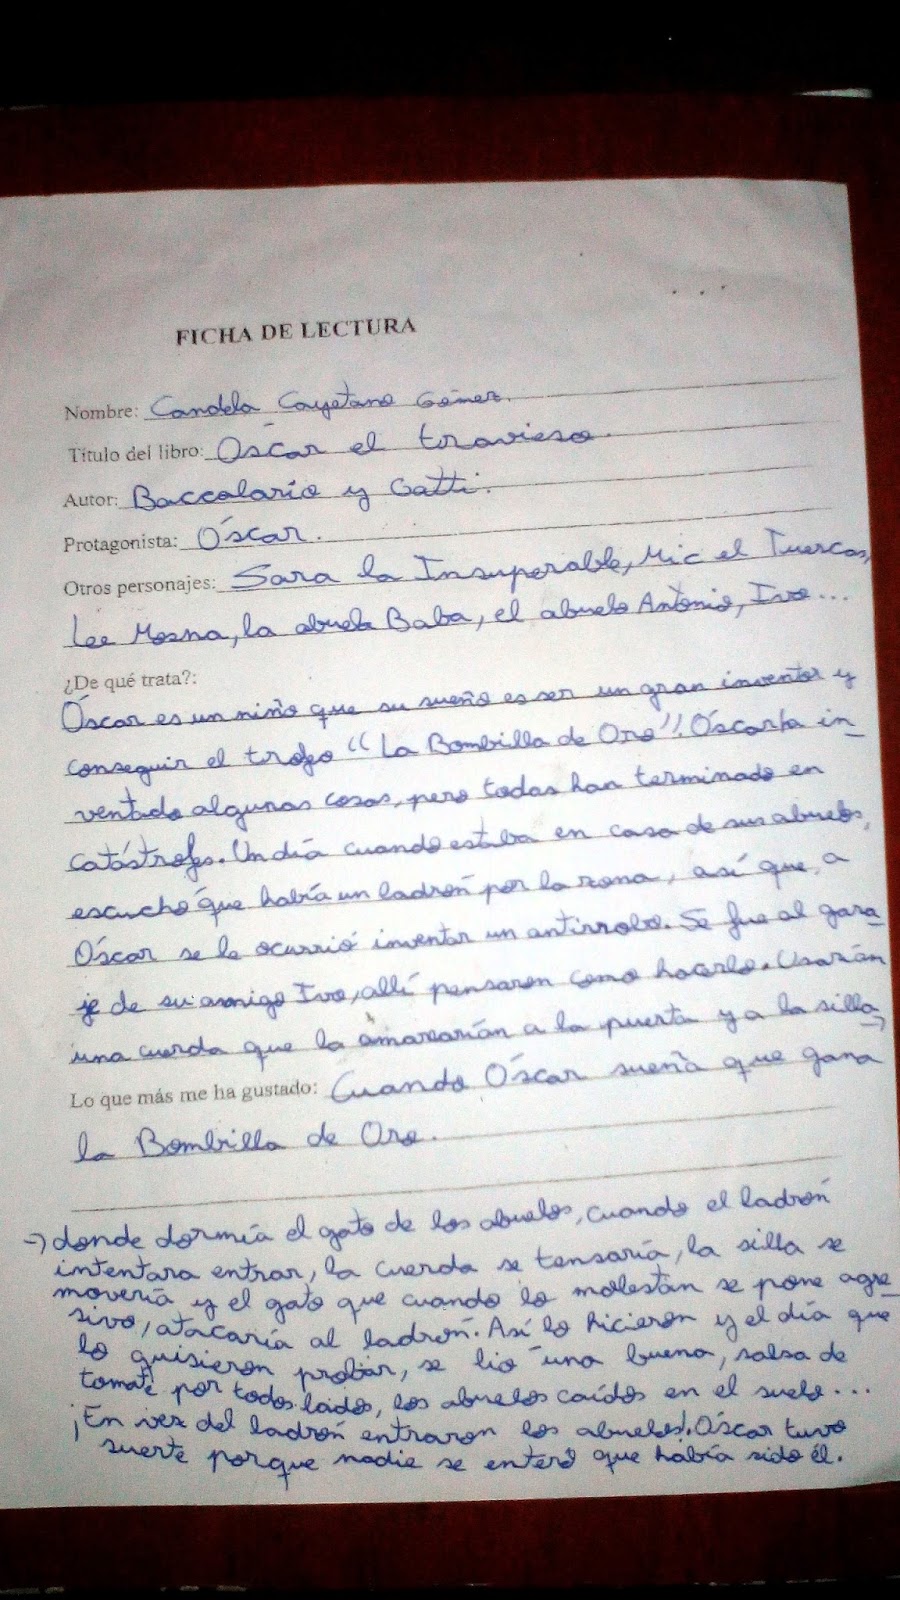 FICHA DE LECTURA
Nombre: Candela Cayetano Gómez.
Título del libro: Óscar el travieso.
Autor: Baccalario y Gatti.
Protagonista: Óscar.
Otros personajes: Sara la Insuperable, Mic el Tuercas,
Lee Mosna, la abuela Baba, el abuelo Antonio, Ivo...
¿De qué trata?:
Óscar es un niño que su sueño es ser un gran inventor y
conseguir el trofeo "La Bombilla de Oro". Óscar ha in_
ventado algunas cosas, pero todas han terminado en
catástrofes. Un día cuando estaba en casa de sus abuelos,
escuchó que había un ladrón por la zona, así que, a
Óscar se le ocurrió inventar un antirrobo. Se fue al gara_
je de su amigo Ivo, allí pensaron como hacerlo. Usarían
una cuerda que la amarrarían a la puerta y a la silla →
Lo que más me ha gustado: Cuando Óscar sueña que gana
la Bombilla de Oro.
→ donde dormía el gato de los abuelos, cuando el ladrón
intentara entrar, la cuerda se tensaría, la silla se
movería y el gato que cuando lo molestan se pone agre_
sivo, atacaría al ladrón. Así lo hicieron y el día que
lo quisieron probar, se lio una buena, salsa de
tomate por todos lados, los abuelos caídos en el suelo...
¡En vez del ladrón entraron los abuelos!. Óscar tuvo
suerte porque nadie se enteró que había sido él.